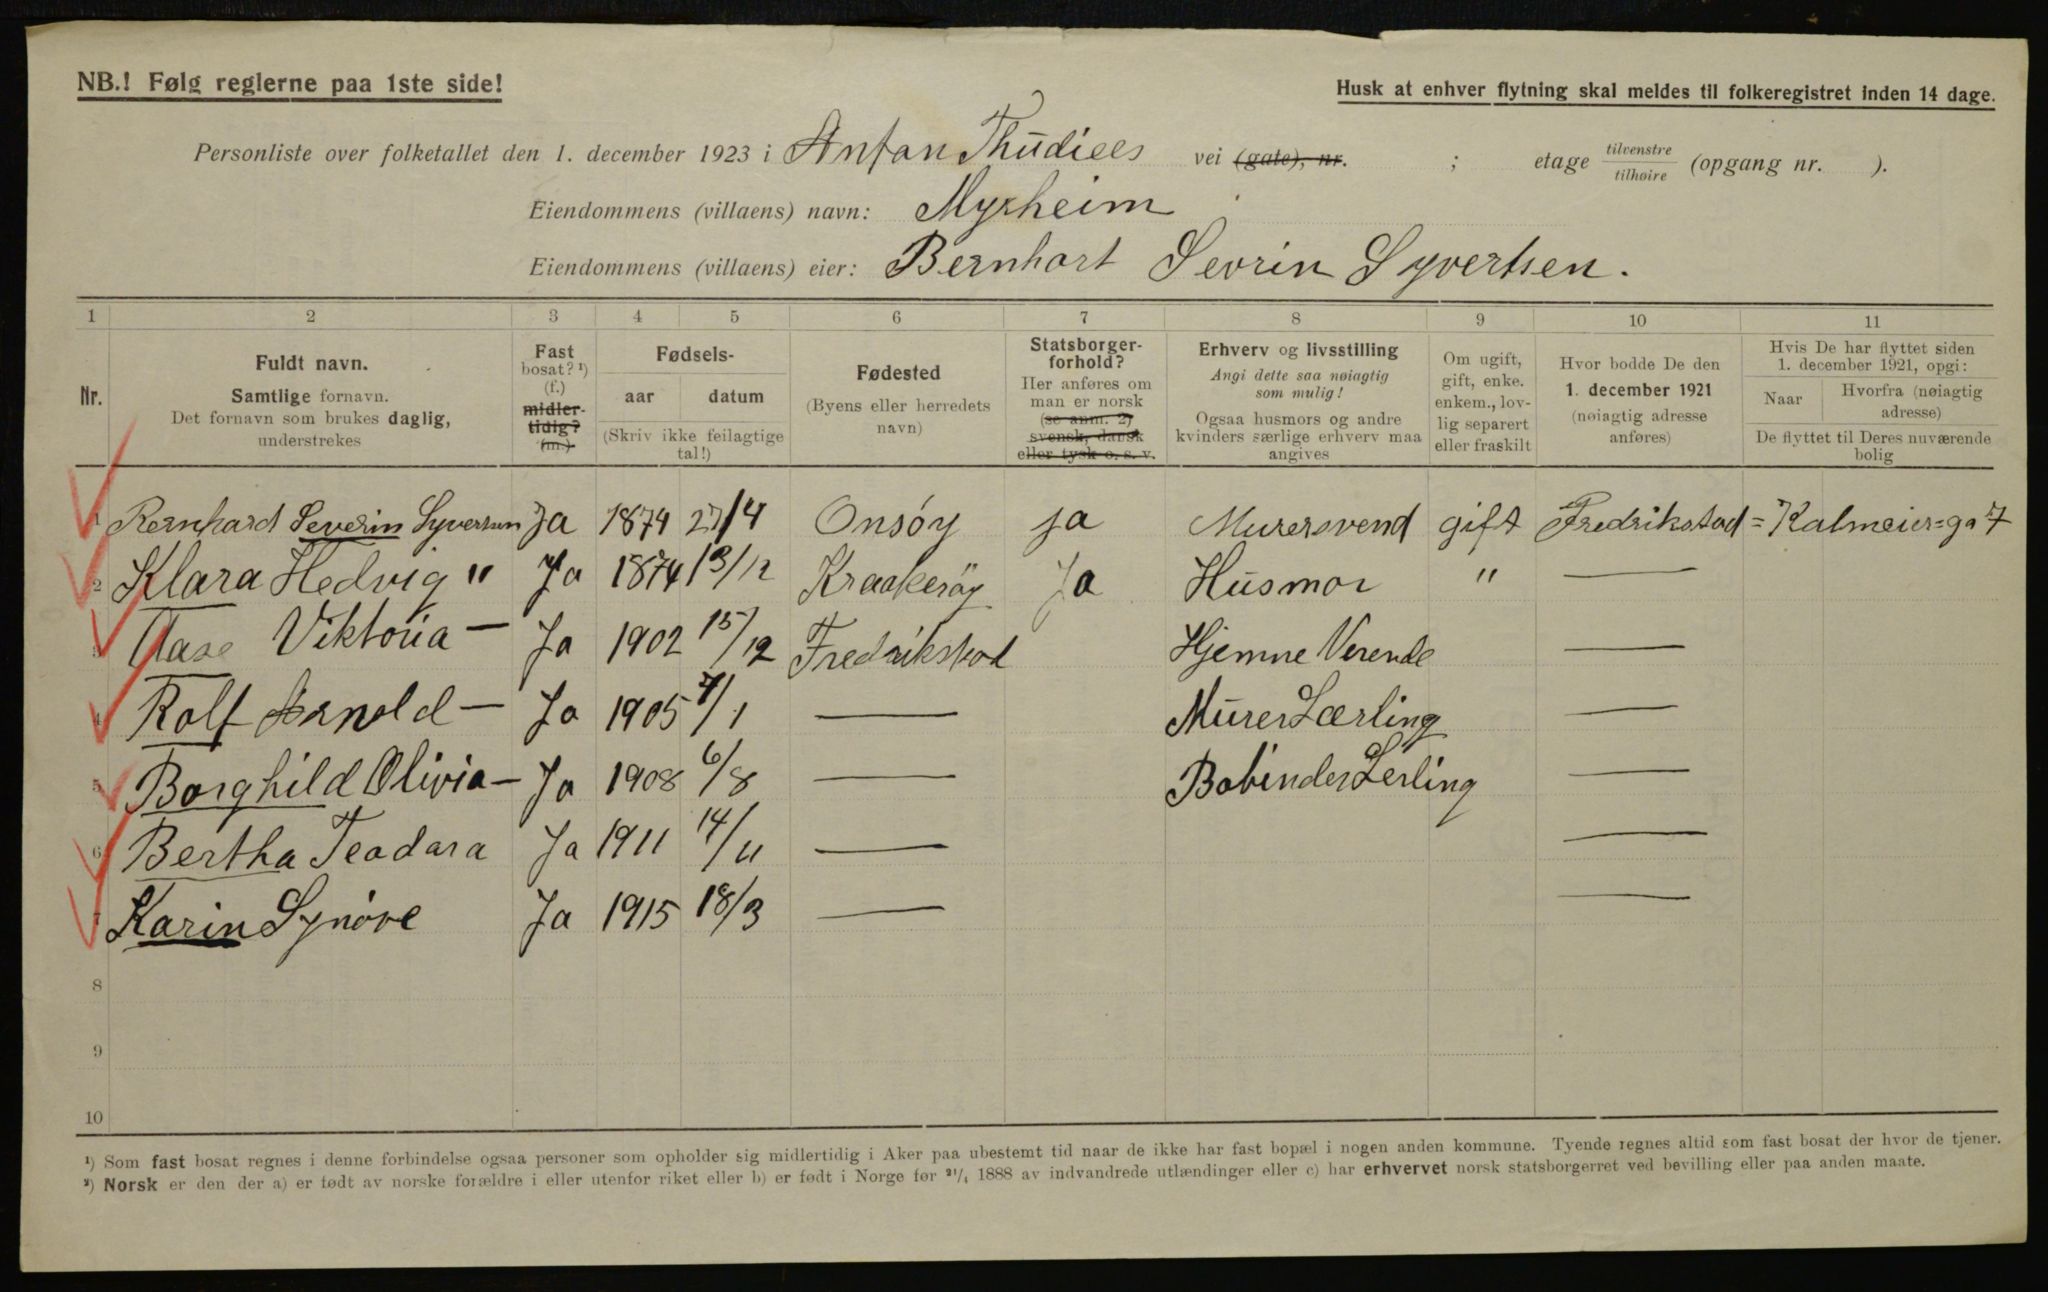 NB.! Følg reglerne paa 1ste side!
Husk at enhver flytning skal meldes til folkeregistret inden 14 dage.
Personliste over folketallet den 1. december 1923 i Anton Thudiees vei (gate), nr. ; etage tilvenstre tilhøire (opgang nr. ).
Eiendommens (villaens) navn: Myrheim
Eiendommens (villaens) eier: Bernhart Sevrin Syvertsen.
1 2 3 4 5 6 7 8 9 10 11
Nr.
Fuldt navn.
Samtlige fornavn.
Det fornavn som brukes daglig,
understrekes
Fast
bosat? ¹)
(f.)
midler-
tidig?
(m.)
Fødsels-
aar datum
(Skriv ikke feilagtige
tal!)
Fødested
(Byens eller herredets
navn)
Statsborger-
forhold?
Her anføres om
man er norsk
(se anm. 2)
svensk, dansk
eller tysk o. s. v.
Erhverv og livsstilling
Angi dette saa nøiagtig
som mulig!
Ogsaa husmors og andre
kvinders særlige erhverv maa
angives
Om ugift,
gift, enke.
enkem., lov-
lig separert
eller fraskilt
Hvor bodde De den
1. december 1921
(nøiagtig adresse
anføres)
Hvis De har flyttet siden
1. december 1921, opgi:
Naar
Hvorfra (nøiagtig
adresse)
De flyttet til Deres nuværende
bolig
1 Bernhard Severin Syversen Ja 1874 27/4 Onsöy ja Murersvend gift Fredrikstad = Kalmeier=ga 7
2 Klara Hedvig " Ja 1874 13/12 Kraakeröy Ja Husmor " —
3 Aase Viktoria — Ja 1902 15/12 Fredrikstad Hjemne Verende —
4 Rolf Arnold — Ja 1905 7/1 — Murer Lærling —
5 Borghild Olivia — Ja 1908 6/8 — Bobinder Lerling —
6 Bertha Teodara Ja 1911 14/11 — —
7 Karin Synöve Ja 1915 18/3 — —
8
9
10
¹) Som fast bosat regnes i denne forbindelse ogsaa personer som opholder sig midlertidig i Aker paa ubestemt tid naar de ikke har fast bopæl i nogen anden kommune. Tyende regnes altid som fast bosat der hvor de tjener.
²) Norsk er den der a) er født av norske forældre i eller utenfor riket eller b) er født i Norge før ²¹/₄ 1888 av indvandrede utlændinger eller c) har erhvervet norsk statsborgerret ved bevilling eller paa anden maate.